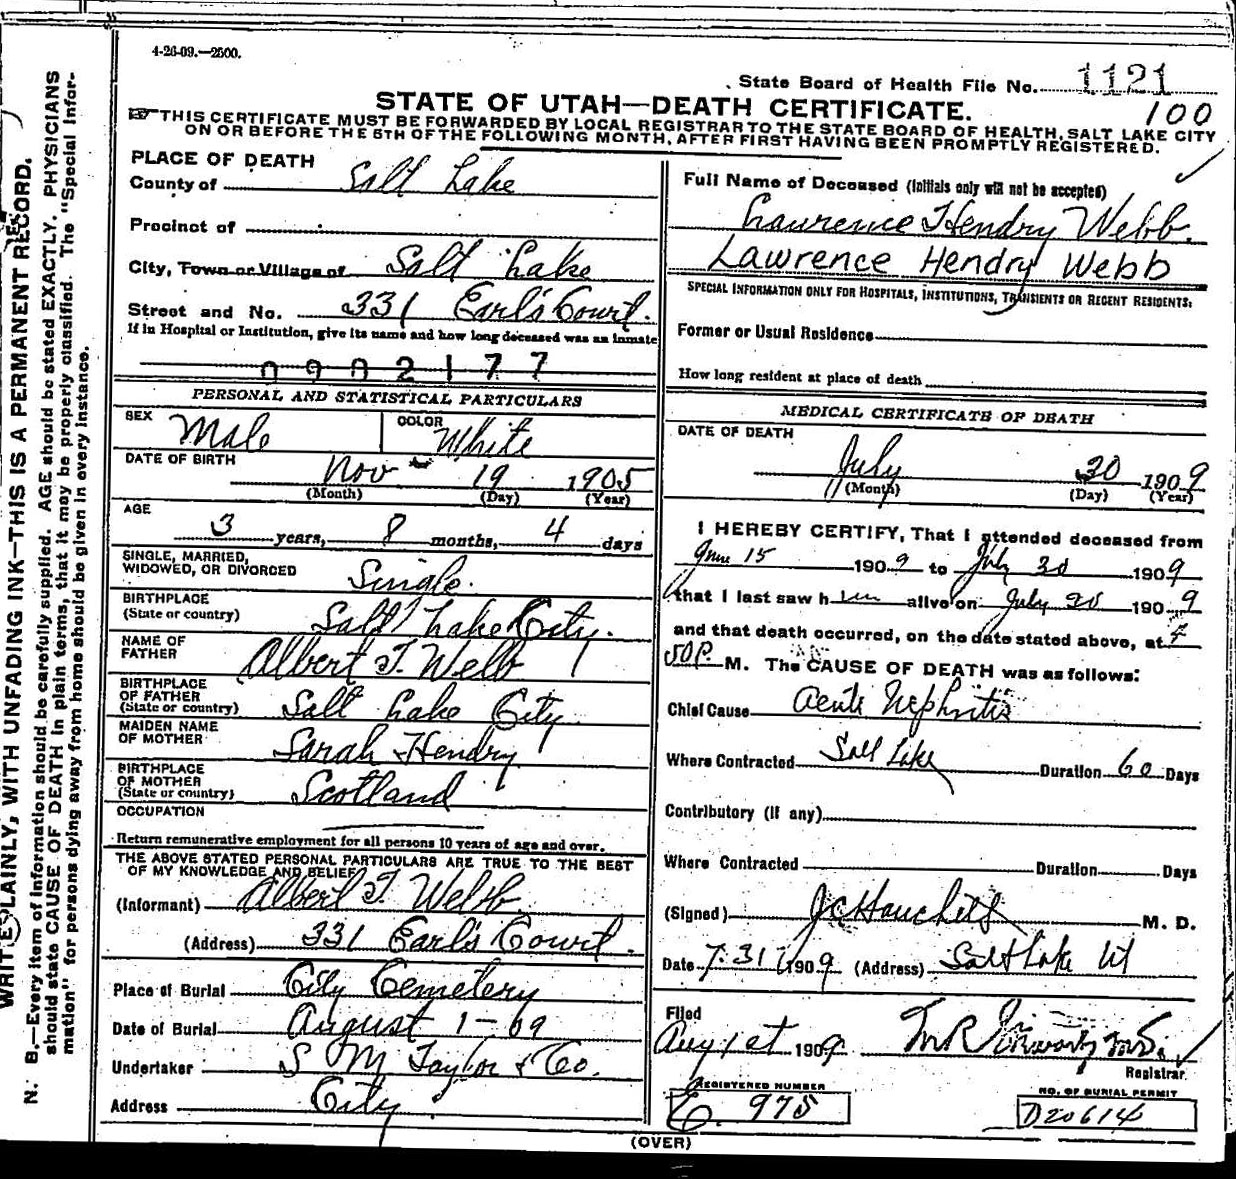 4-26-09.—2500.
State Board of Health File No. 1121
100
STATE OF UTAH—DEATH CERTIFICATE.
THIS CERTIFICATE MUST BE FORWARDED BY LOCAL REGISTRAR TO THE STATE BOARD OF HEALTH, SALT LAKE CITY
ON OR BEFORE THE 5TH OF THE FOLLOWING MONTH, AFTER FIRST HAVING BEEN PROMPTLY REGISTERED.
PLACE OF DEATH
County of Salt Lake
Precinct of
City, Town or Village of Salt Lake
Street and No. 331 Earl's Court.
If in Hospital or Institution, give its name and how long deceased was an inmate
0902177
PERSONAL AND STATISTICAL PARTICULARS
SEX Male COLOR White
DATE OF BIRTH Nov 19 1905
(Month) (Day) (Year)
AGE
3 years, 8 months, 4 days
SINGLE, MARRIED,
WIDOWED, OR DIVORCED Single.
BIRTHPLACE
(State or country) Salt Lake City.
NAME OF
FATHER Albert T. Webb
BIRTHPLACE
OF FATHER
(State or country) Salt Lake City
MAIDEN NAME
OF MOTHER Sarah Hendry
BIRTHPLACE
OF MOTHER
(State or country) Scotland
OCCUPATION
Return remunerative employment for all persons 10 years of age and over.
THE ABOVE STATED PERSONAL PARTICULARS ARE TRUE TO THE BEST
OF MY KNOWLEDGE AND BELIEF
(Informant) Albert T. Webb
(Address) 331 Earl's Court.
Place of Burial City Cemetery
Date of Burial August 1-09
Undertaker S M Taylor & Co.
Address City
Full Name of Deceased (Initials only will not be accepted)
Lawrence Hendry Webb.
Lawrence Hendry Webb
SPECIAL INFORMATION ONLY FOR HOSPITALS, INSTITUTIONS, TRANSIENTS OR RECENT RESIDENTS:
Former or Usual Residence
How long resident at place of death
MEDICAL CERTIFICATE OF DEATH
DATE OF DEATH
July 30 1909
(Month) (Day) (Year)
I HEREBY CERTIFY, That I attended deceased from
June 15 1909 to July 30 1909
that I last saw him alive on July 30 1909
and that death occurred, on the date stated above, at 4
50 P. M. The CAUSE OF DEATH was as follows:
Chief Cause Acute Nephritis
Where Contracted Salt Lake Duration 60 Days
Contributory (if any)
Where Contracted Duration Days
(Signed) M. D.
Date 7.31 1909 (Address) Salt Lake Ut
Filed
Aug 1st 1909
Registrar
REGISTERED NUMBER
E. 975
NO. OF BURIAL PERMIT
D20614
(OVER)
WRITE PLAINLY, WITH UNFADING INK—THIS IS A PERMANENT RECORD.
N. B.—Every item of information should be carefully supplied. AGE should be stated EXACTLY. PHYSICIANS
should state CAUSE OF DEATH in plain terms, that it may be properly classified. The "Special Infor-
mation" for persons dying away from home should be given in every instance.